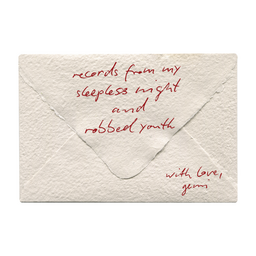 records from my
sleepless night
and
robbed youth
with love,
gemi